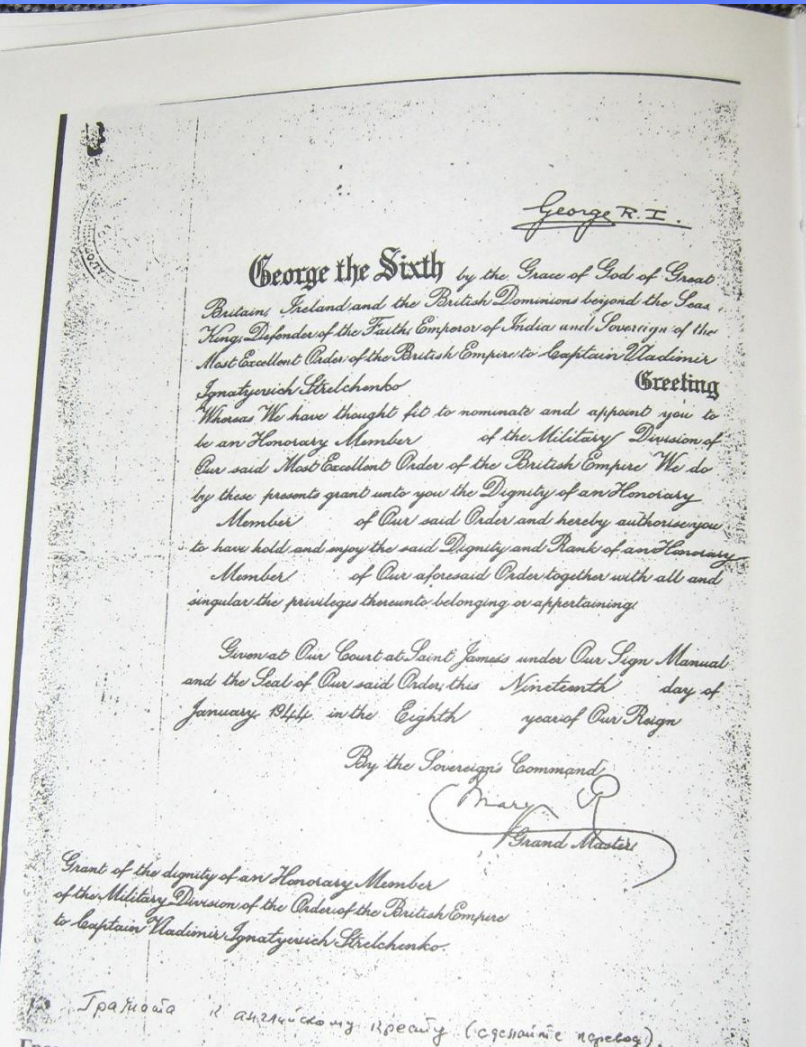 George R.I.
George the Sixth by the Grace of God of Great
Britain, Ireland and the British Dominions beyond the Seas,
King, Defender of the Faith, Emperor of India and Sovereign of the
Most Excellent Order of the British Empire to Captain Vladimir
Ignatyevich Strelchenko Greeting
Whereas We have thought fit to nominate and appoint you to
be an Honorary Member of the Military Division of
Our said Most Excellent Order of the British Empire We do
by these presents grant unto you the Dignity of an Honorary
Member of Our said Order and hereby authorise you
to have hold and enjoy the said Dignity and Rank of an Honorary
Member of Our aforesaid Order together with all and
singular the privileges thereunto belonging or appertaining.
Given at Our Court at Saint James's under Our Sign Manual
and the Seal of Our said Order, this Nineteenth day of
January 1944 in the Eighth year of Our Reign
By the Sovereign's Command,
Mary R
Grand Master.
Grant of the dignity of an Honorary Member
of the Military Division of the Order of the British Empire
to Captain Vladimir Ignatyevich Strelchenko.
Грамота к английскому кресту (сделайте перевод)